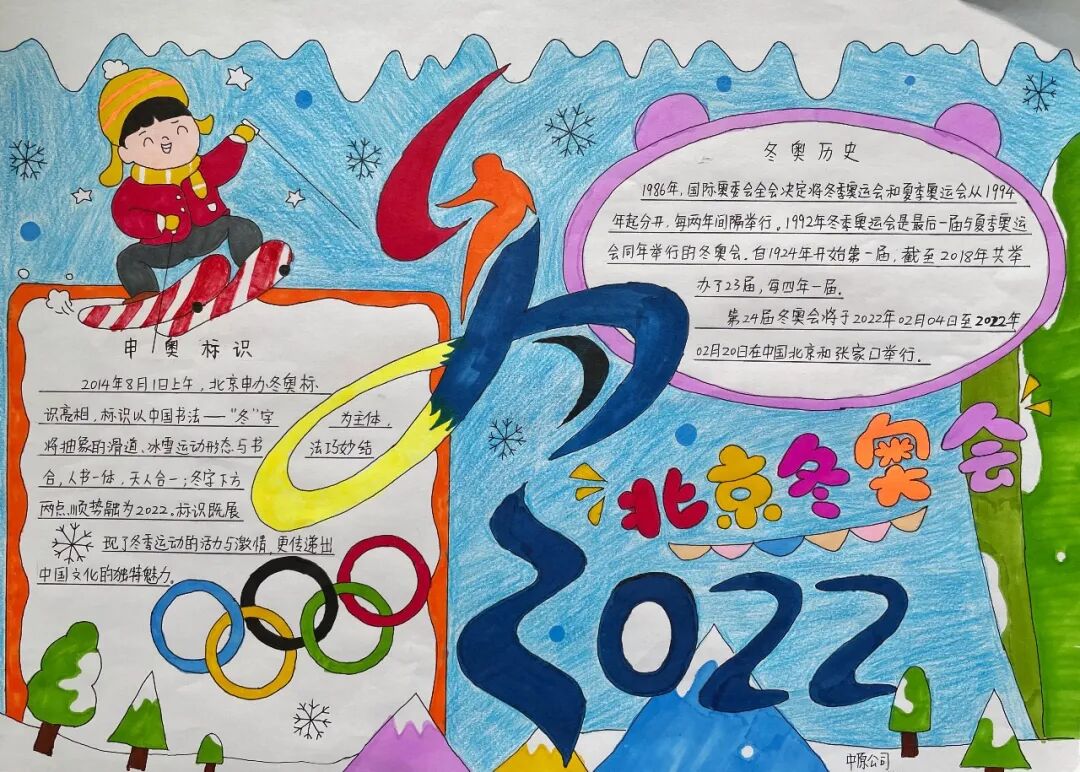 申奥标识
2014年8月1日上午，北京申办冬奥标
识亮相，标识以中国书法——“冬”字
为主体，
将抽象的滑道、冰雪运动形态与书
法巧妙结
合，人书一体，天人合一；冬字下方
两点顺势融为2022.标识既展
现了冬季运动的活力与激情，更传递出
中国文化的独特魅力。
冬奥历史
1986年，国际奥委会全会决定将冬季奥运会和夏季奥运会从1994
年起分开，每两年间隔举行。1992年冬季奥运会是最后一届与夏季奥运
会同年举行的冬奥会。自1924年开始第一届，截至2018年共举
办了23届，每四年一届。
第24届冬奥会将于2022年02月04日至2022年
02月20日在中国北京和张家口举行。
北京冬奥会
2022
中原公司